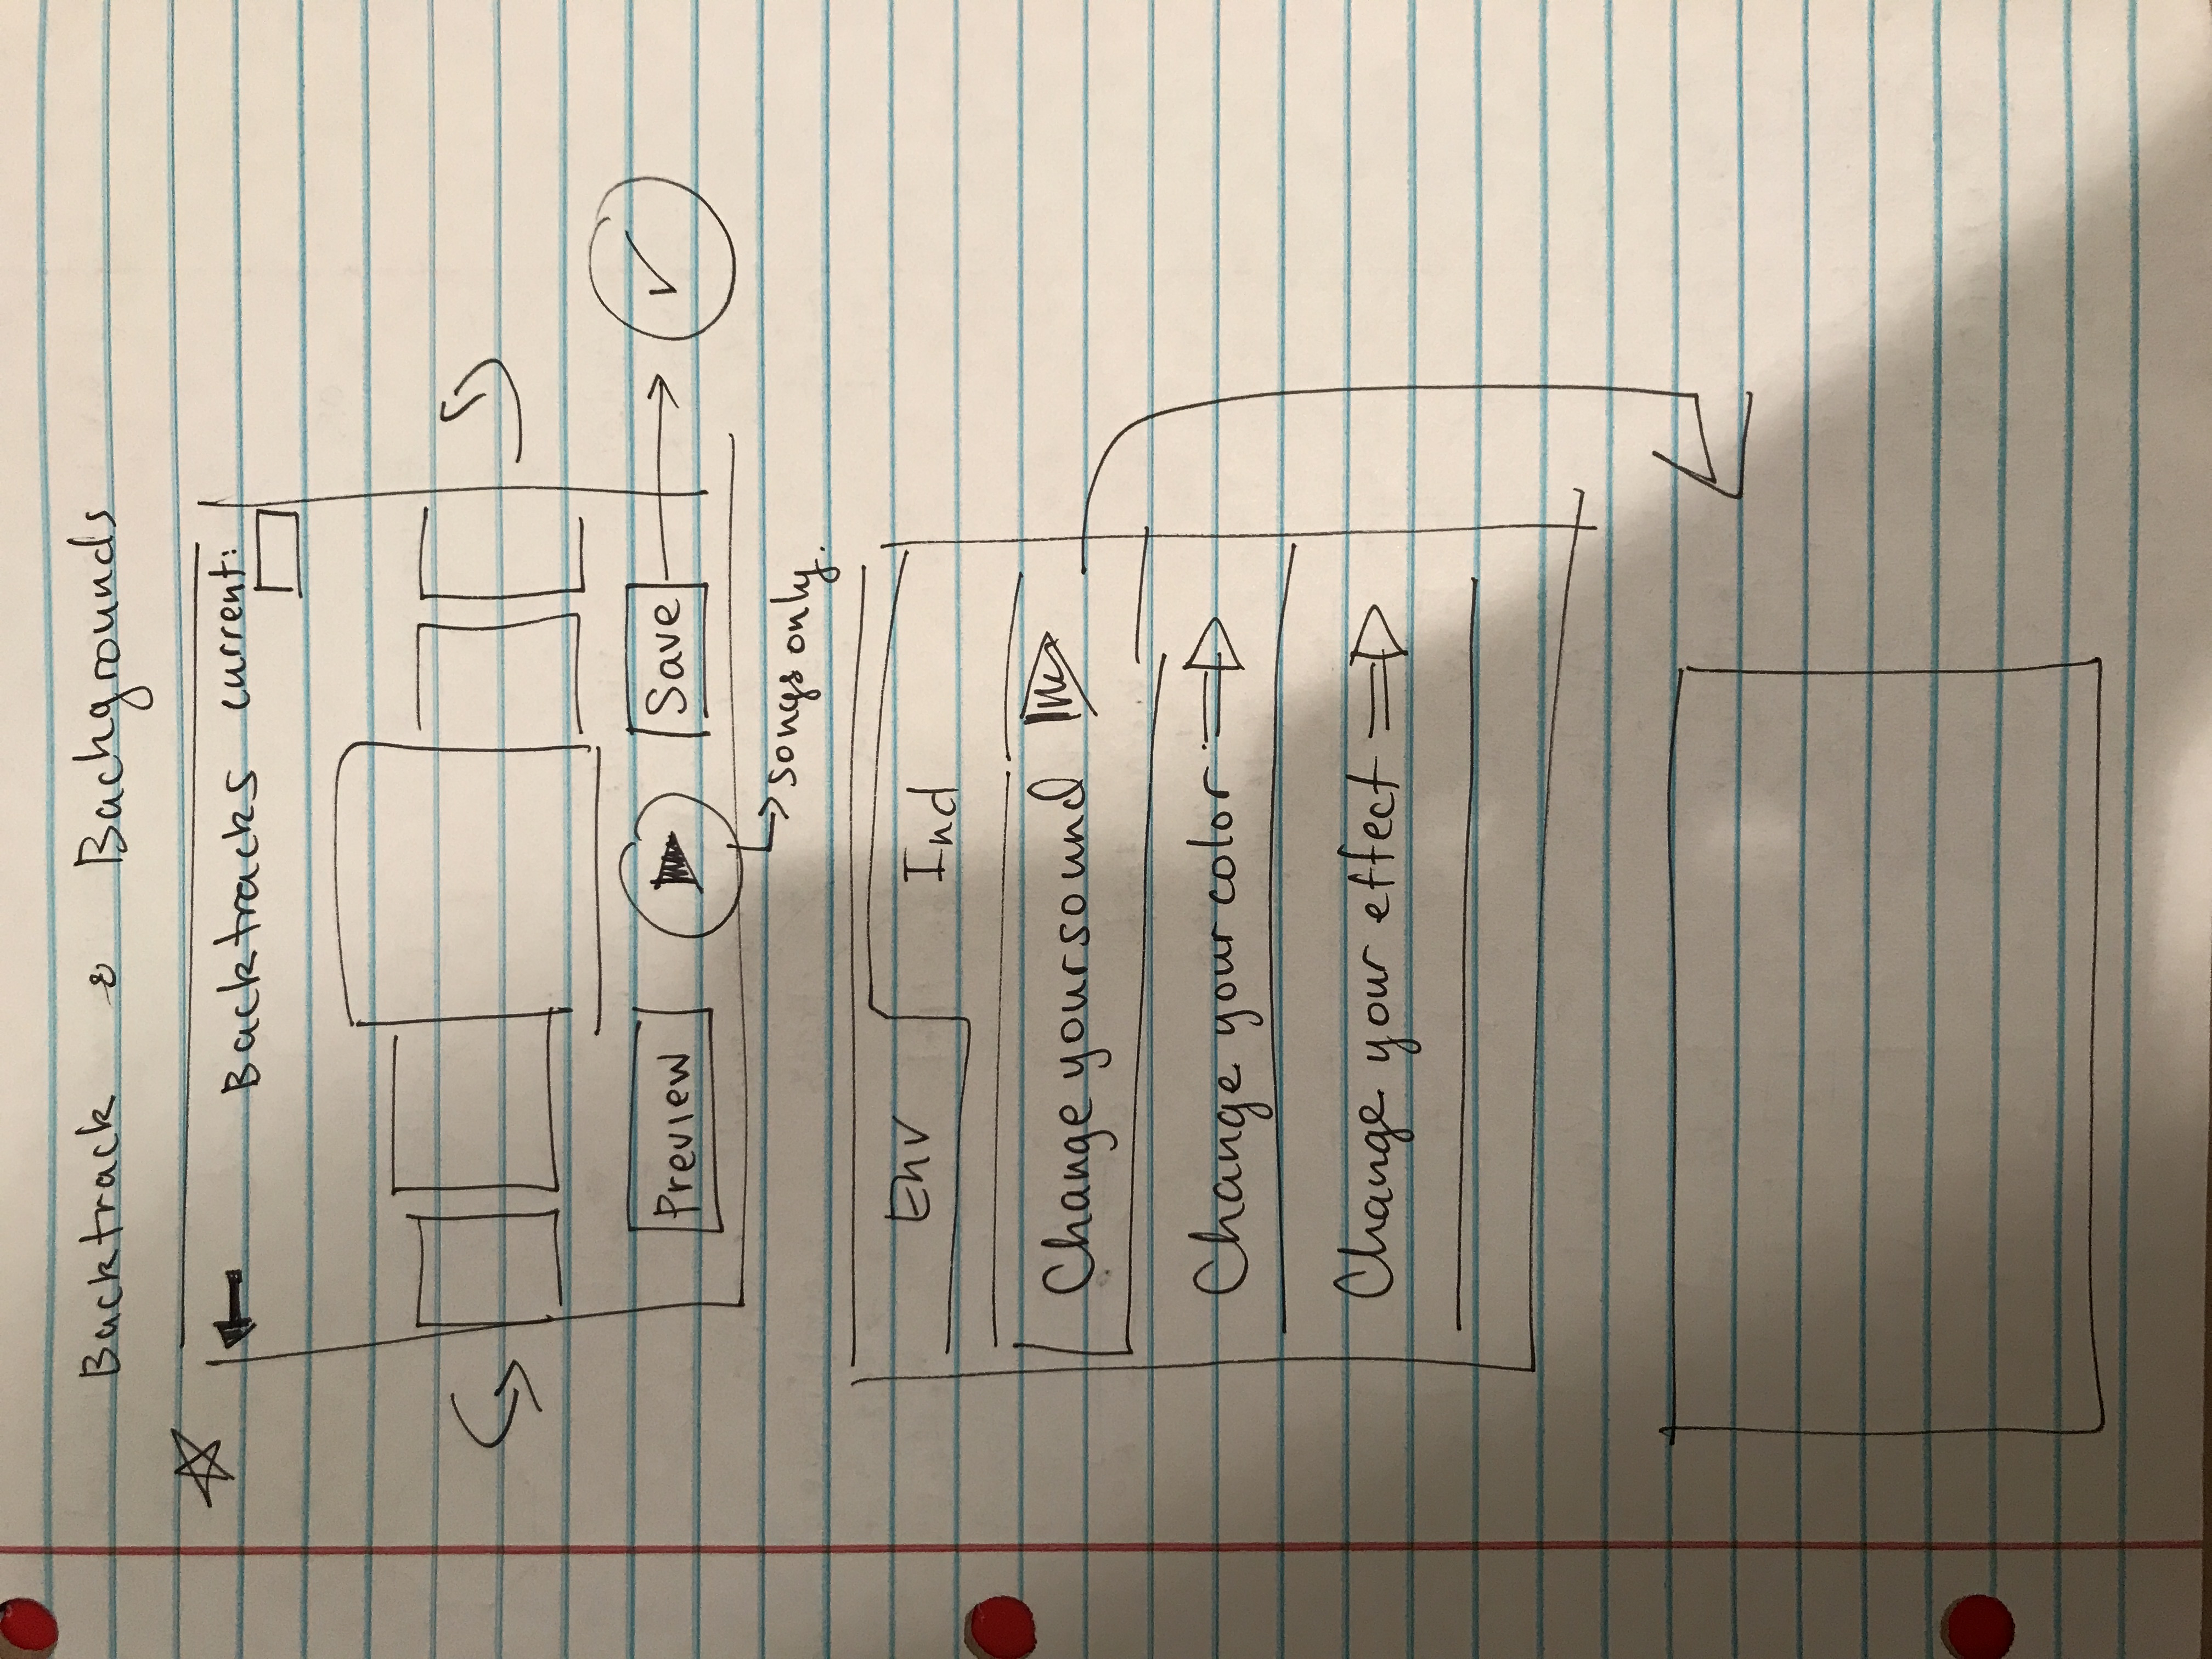 Backtrack & Backgrounds
Backtracks current:
Preview Save
songs only.
Env Ind
Change your sound
Change your color
Change your effect